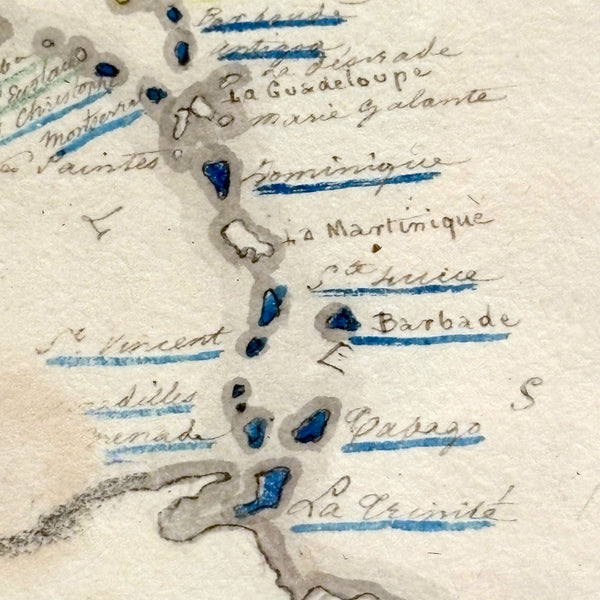 Barbude
Antigoa
la Désirade
La Guadeloupe
Marie Galante
Eustac
Christophe
Montserrat
Saintes
Dominique
La Martinique
L
Ste Lucie
Barbade
St Vincent
E
S
adilles
Tabago
renade
La Trinité